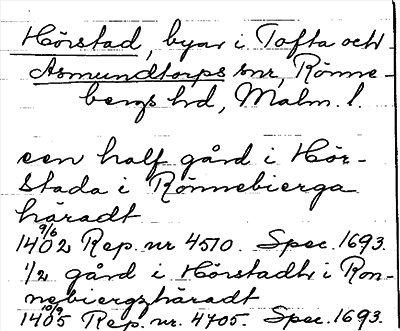 Hörstad, byar i Tofta och
Asmundtorps snr, Rönne-
bergs hd, Malm. l.
een half gård i Hör-
stada i Rönnebierga
häradt
9/6
1402 Rep. nr 4510. Spec. 1693.
1/2 gård i Hörstadhr i Ron-
nebiergzhäradt
10/9
1405 Rep. nr. 4705. Spec. 1693.